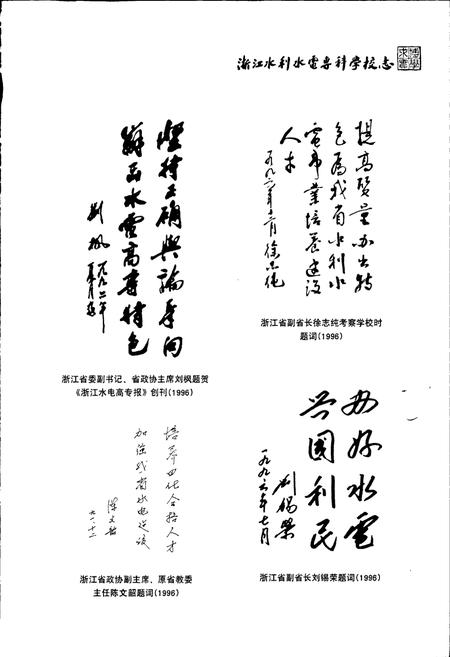 浙江水利水电专科学校志
提高质量办出特
色为我省水利水
电事业培养建设
人才
徐志纯
浙江省副省长徐志纯考察学校时
题词(1996)
坚持正确舆论导向
办出水电高专特色
刘枫
浙江省委副书记、省政协主席刘枫题贺
《浙江水电高专报》创刊(1996)
办好水电
兴国利民
一九九六年七月
刘锡荣
浙江省副省长刘锡荣题词(1996)
培养四化合格人才
加强我省水电建设
陈文韶
九一·十二
浙江省政协副主席、原省教委
主任陈文韶题词(1996)